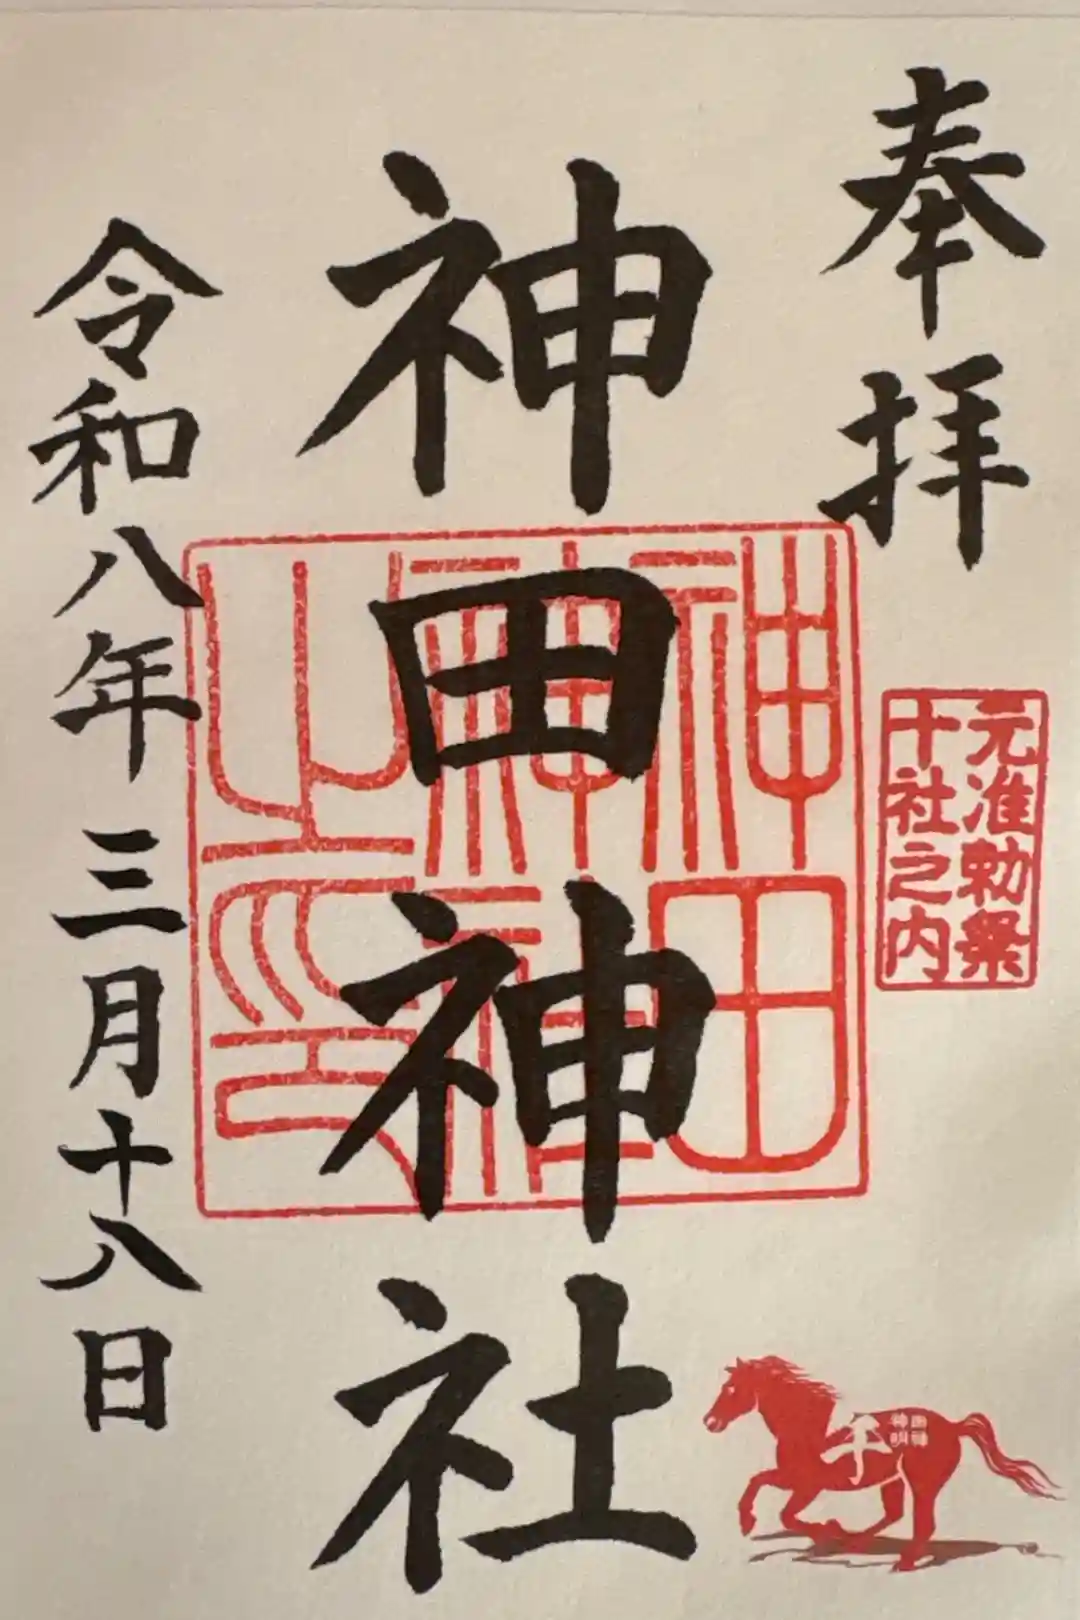 奉拝
元准勅祭
十社之内
神田神社
神田
神社
之印
令和八年三月十八日
午
神田
明神